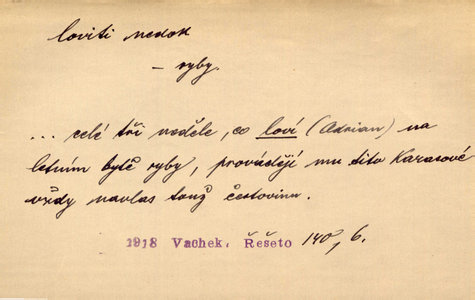 loviti nedok
– ryby.
... celé tři neděle, co loví (Adrian) na
letním bytě ryby, provádějí mu tito Karasové
vždy navlas touž čestovinu.
1918 Vachek, Řešeto 140, 6.